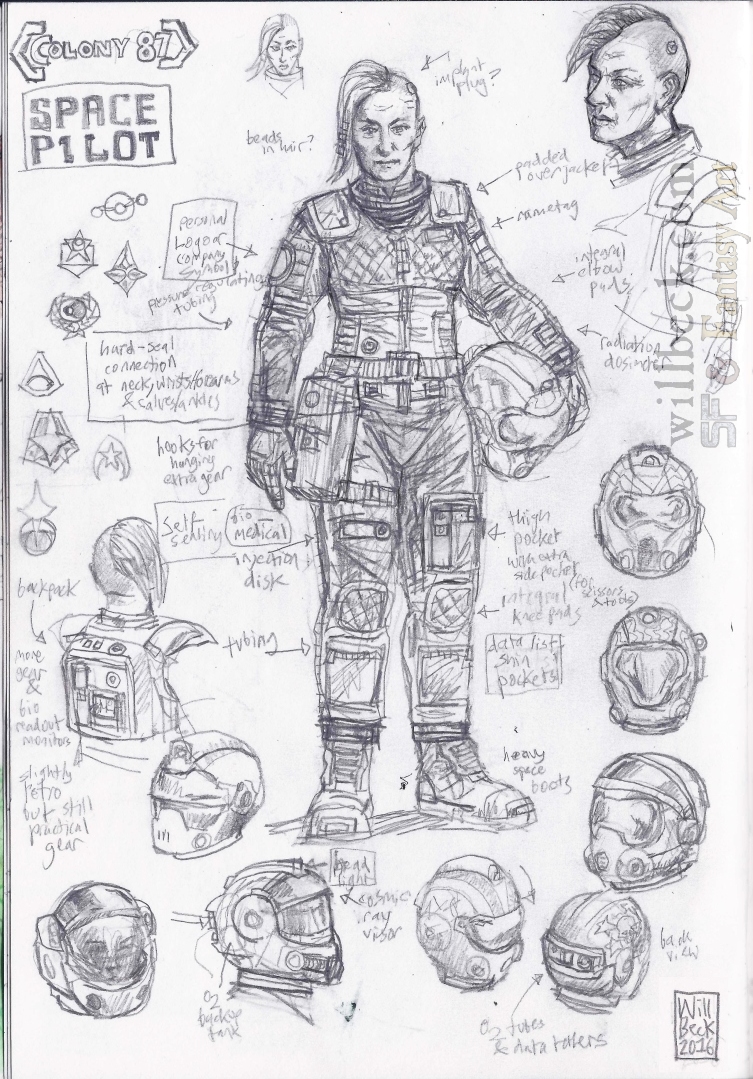 COLONY 87
SPACE
PILOT
implant
plug?
beads
in hair?
padded
overjacket
nametag
personal
logo or
company
symbol
pressure regulating
tubing
integral
elbow
pads
radiation
dosimeter
hard-seal
connection
at neck, wrists/forearms
& calves/ankles
hooks for
hanging
extra gear
self-
sealing
bio
medical
injection
disk
thigh
pocket
with extra
side pocket
(for
scissors
& tools)
integral
knee pads
backpack
tubing
data list
shin
pockets
more
gear
&
bio
readout
monitors
slightly
retro
but still
practical
gear
heavy
space
boots
head
light
cosmic
ray
visor
O2
backup
tank
back
view
O2 tubes
& data tethers
Will
Beck
2016
willbeck.com
SF & Fantasy Art